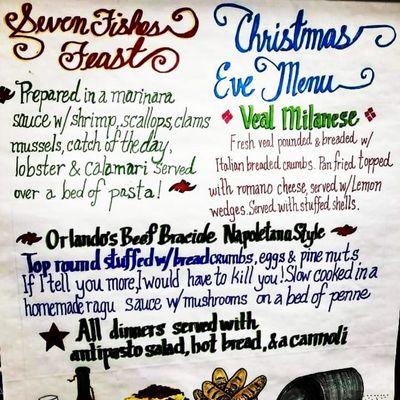 Seven Fishes
Feast
Prepared in a marinara
sauce w/ shrimp, scallops, clams
mussels, catch of the day,
lobster & calamari served
over a bed of pasta!
Christmas
Eve Menu
Veal Milanese
Fresh veal pounded & breaded w/
Italian breaded crumbs. Pan fried topped
with romano cheese, served w/ Lemon
wedges. Served with stuffed shells.
Orlando's Beef Bracide Napoletana Style
Top round stuffed w/ breadcrumbs, eggs & pine nuts
If I tell you more, I would have to kill you! Slow cooked in a
homemade ragu sauce w/ mushrooms on a bed of penne
All dinners served with
antipasto salad, hot bread, & a cannoli